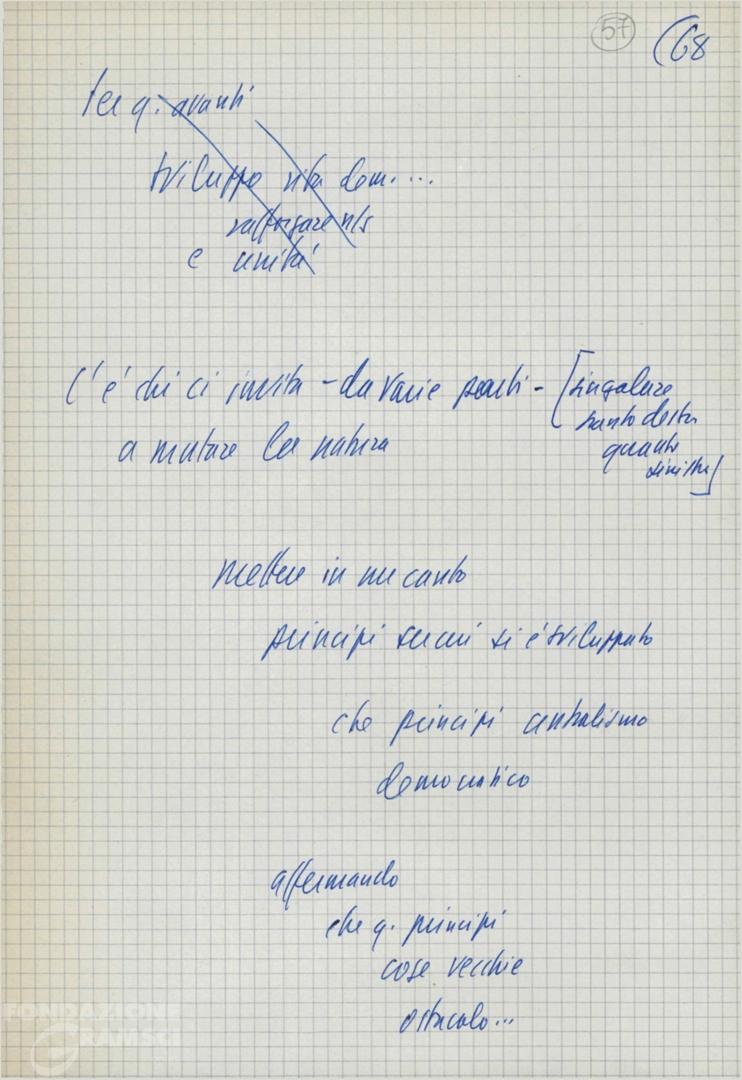 57
(68
per q. avanti
sviluppo vita dem....
rafforzare n/s
e unità
C'è chi ci invita - da varie parti - [singolare
tanto destra
a mutare la natura
quanto
sinistra]
mettere in un canto
principi su cui si è sviluppato
che principi centralismo
democratico
affermando
che q. principi
cose vecchie
ostacolo...
FONDAZIONE
GRAMSCI